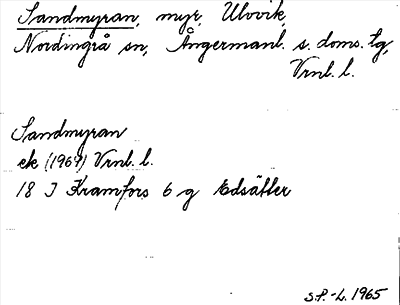 Sandmyran, myr, Ulvvik,
Nordingrå sn, Ångermanl. s. doms. tg,
Vrnl. l.
Sandmyran
ek (1969) Vrnl. l.
18 J Kramfors 6 g Edsätter
S.P.-L. 1965